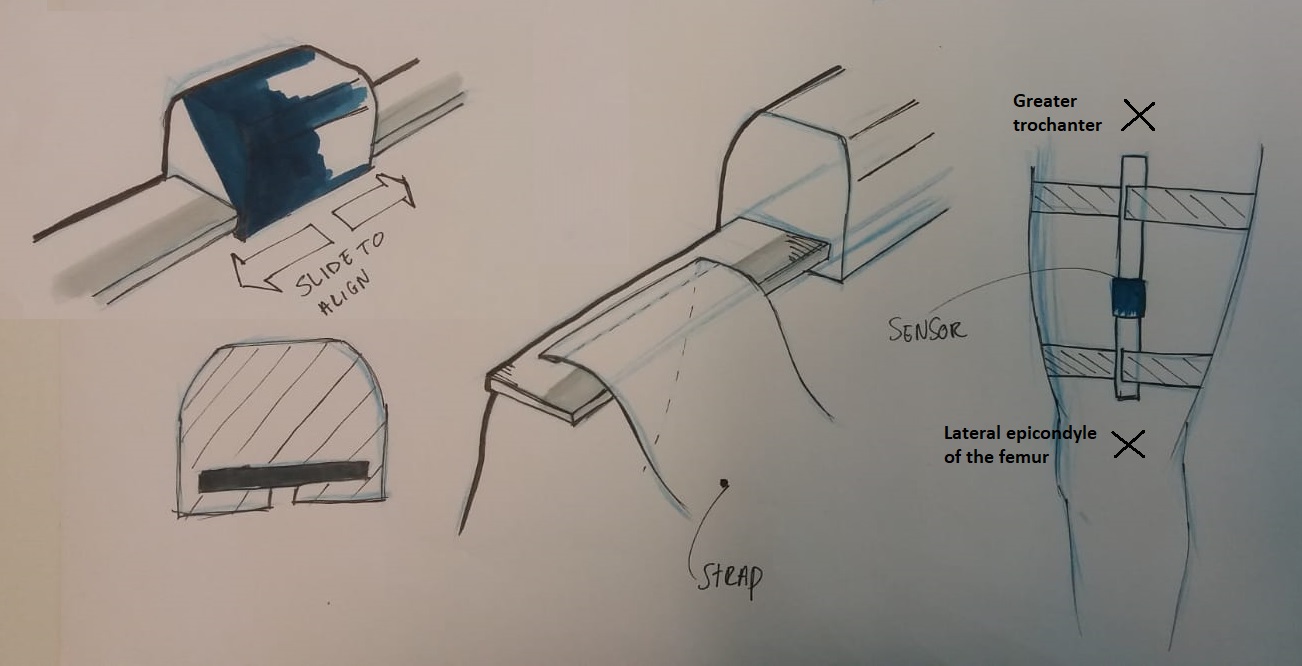 SLIDE TO
ALIGN
STRAP
SENSOR
Greater
trochanter
Lateral epicondyle
of the femur